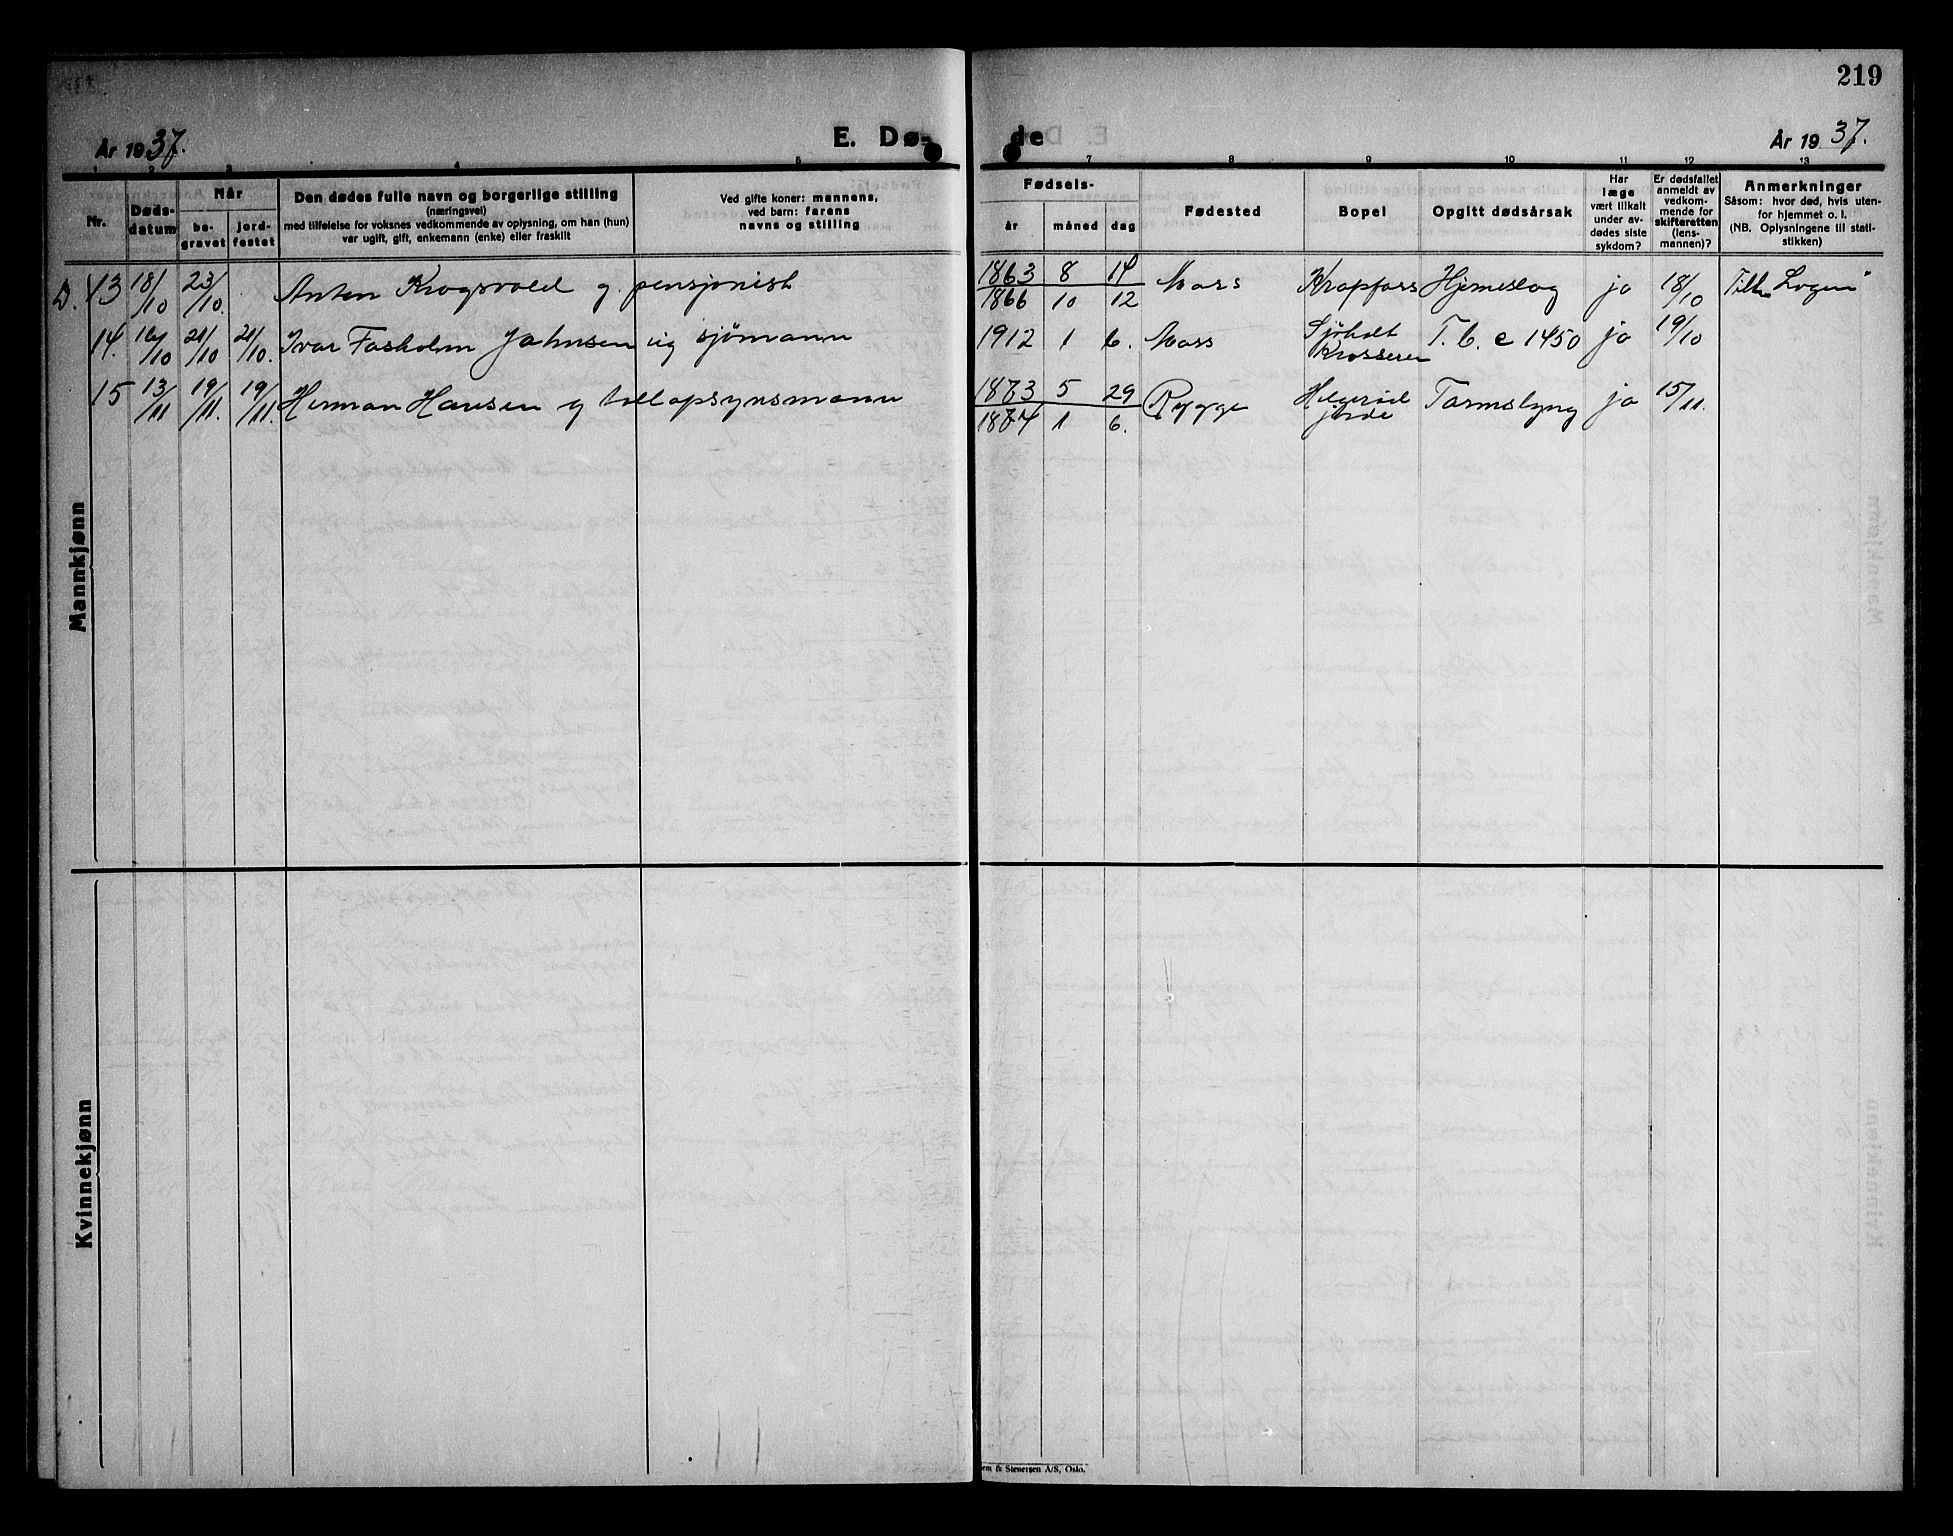 219
År 1937.
E. Dø-
de
År 1937.
1 2 3 4 5
7 8 9 10 11 12 13
Nr.
Døds-
datum
Når
be-
gravet
jord-
festet
Den dødes fulle navn og borgerlige stilling
(næringsvei)
med tilføielse for voksnes vedkommende av oplysning, om han (hun)
var ugift, gift, enkemann (enke) eller fraskilt
Ved gifte koner: mannens,
ved barn: farens
navns og stilling
Fødsels-
år måned dag
Fødested
Bopel
Opgitt dødsårsak
Har
læge
vært tilkalt
under av-
dødes siste
sykdom?
Er dødsfallet
anmeldt av
vedkom-
mende for
skifteretten
(lens-
mannen)?
Anmerkninger
Såsom: hvor død, hvis uten-
for hjemmet o. l.
(NB. Oplysningene til stati-
stikken)
Mannkjønn
D. 13 18/10 23/10. Anton Krogsvold g. pensjonist 1863 8 14 Moss Krapfoss Hjerneslag ja 18/10 Tilh. „Logen"
1866 10 12
14. 16/10 21/10 21/10. Ivar Fosholm Johnsen ug sjømann 1912 1 6. Moss Sjøholt T. b. c 1450 ja 19/10
Krosseren
15 13/11 19/11. 19/11. Herman Hansen g tollopsynsmann 1873 5 29 Rygge Helgerød Tarmslyng ja 15/11.
jorde
1874 1 6.
Kvinnekjønn
em & Stenersen A/S, Oslo.